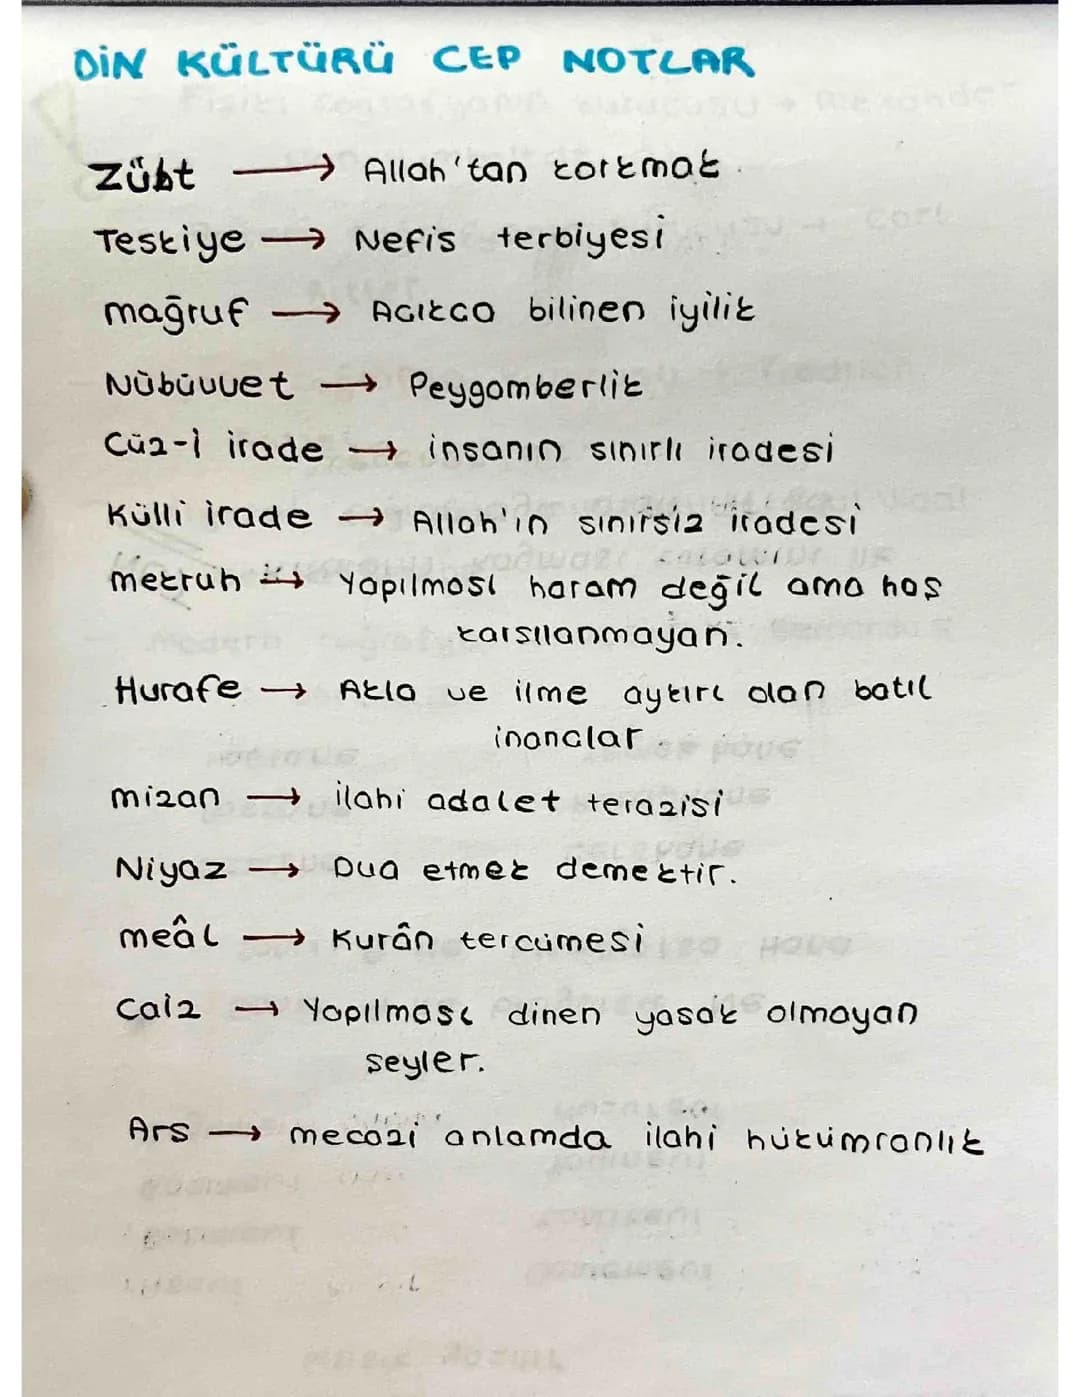 DİN KÜLTÜRÜ CEP NOTLAR
Zübt → Allah'tan korkmak.
Teskiye → Nefis terbiyesi
mağruf → Acıkca bilinen iyilik
Nübüvvet → Peygamberlik
Cüz-i irade → insanın sınırlı iradesi
Külli irade → Allah'ın sınırsız iradesi
mekruh → Yapılması haram değil ama hoş
karsılanmayan.
Hurafe → Akla ve ilme aykırı olan batıl
inanclar.
mizan → ilahi adalet terazisi
Niyaz → Dua etmek demektir.
meâl → Kurân tercümesi
Caiz → Yapılması dinen yasak olmayan
seyler.
Ars → mecazi anlamda ilahi hükümranlık